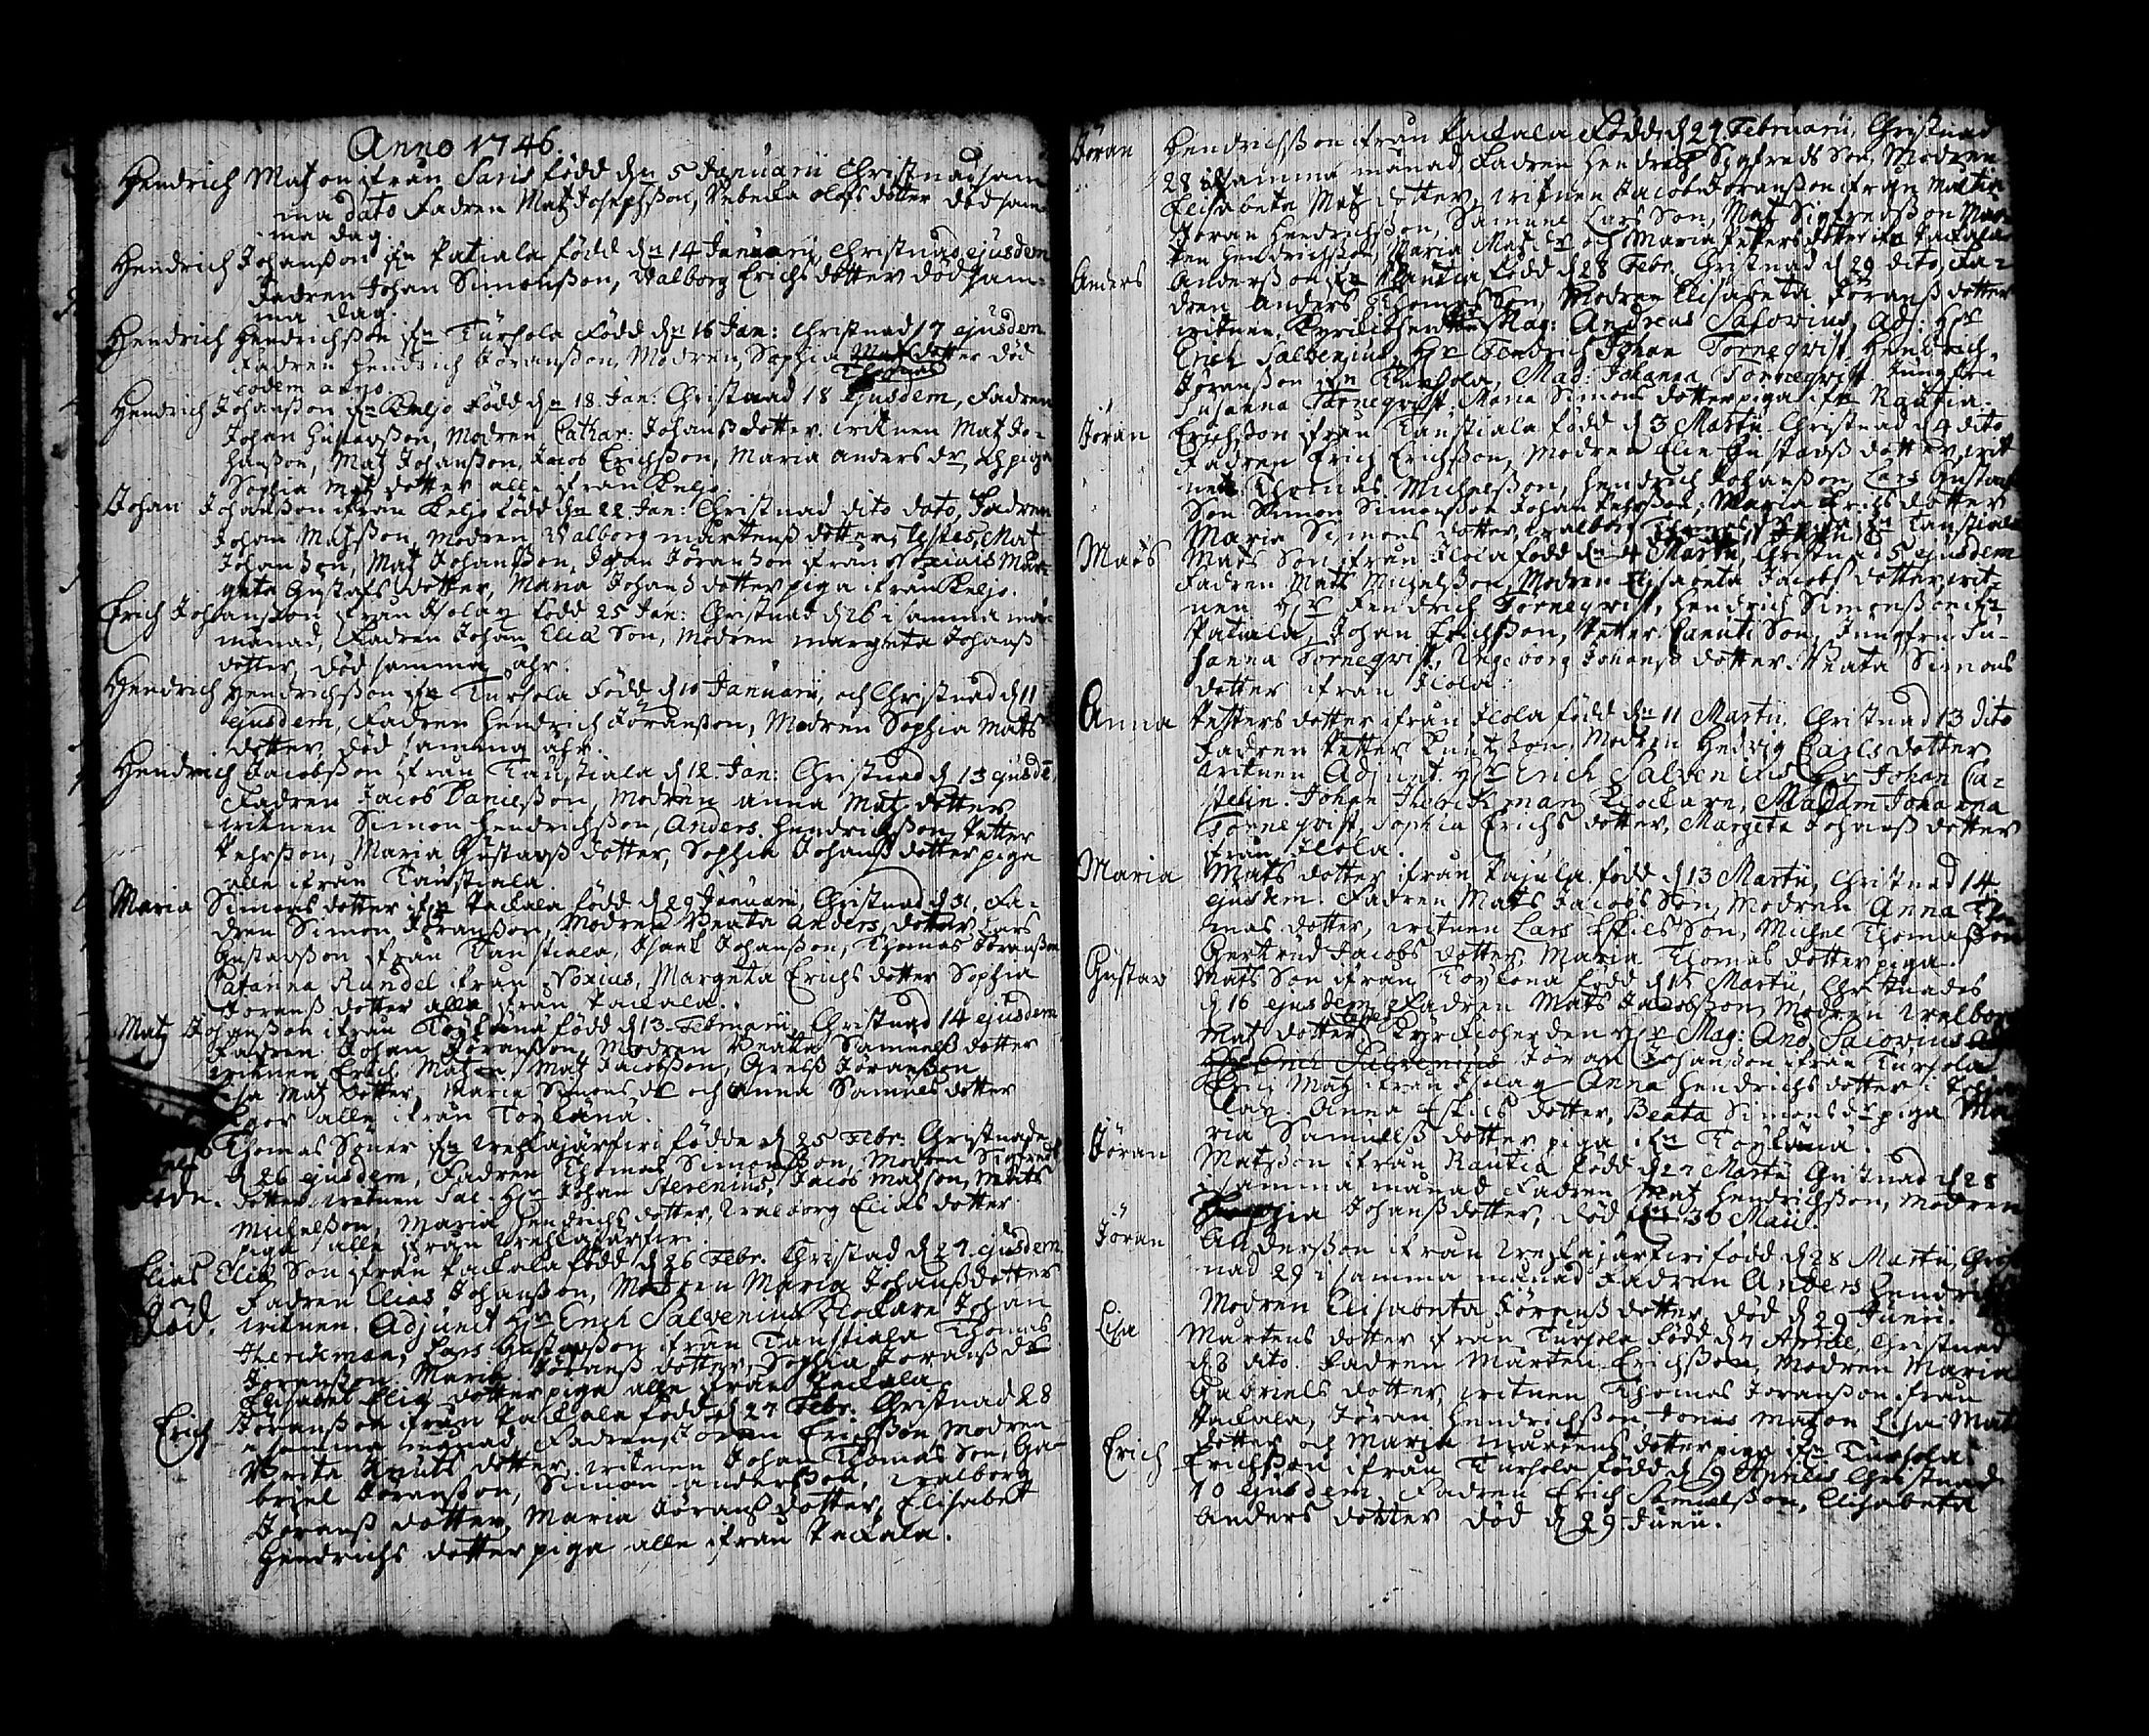 Anno 1746.
Hendrich Matzon ifrån Saris född dn 5 Januarii Christnad sam
ma dato Fadren Matz Josephsson, Rebecka Olofs dotter död sam
ma dag.
Hendrich Johansson ifn Patiala född dn 14 Januarii, Christnad ejusdem
Fadren Johan Simonsson, Walborg Erichs dotter död sam-
ma dag.
Hendrich Hendrichsson ifn Turhola född dn 16 Jan: Christnad 17 ejusdem
Fadren Hendrich Jöransson, Modren, Sophia Matz dotter död
Thomas
eodem anno.
Hendrich Johansson ifn Keljo född dn 18 Jan: Christnad 18 ejusdem, Fadren
Johan Gustavsson, Modren Cathar: Johanss dotter. witnen Matz Jo-
hansson, Matz Johansson, Jacob Erichsson, Maria Anders dr, och piga
Sophia Matz dotter alle ifrån Keljo.
Johan Johansson ifrån Keljo född dn 22 Jan: Christnad dito dato, Fadren
Johan Matzson, Modren Walborg Mårtenss dotter, testes, Mat
Johansson, Matz Johansson, Johan Jöransson ifrån Mar-
greta Gustafs dotter, Maria Johans dotter piga ifrån Keljo.
Erich Johansson ifrån Isolax född 25 Jan: Christnad d 26 i samma
månad, Fadren Johan Elia Son, Modren Margreta Johanss
dotter, död samma åhr.
Hendrich Hendrichsson ifn Turhola född d 10 Januarii, och Christnad d 11
ejusdem, Fadren Hendrich Jöransson, Modren Sophia Mats
dotter, död samma åhr.
Hendrich Jacobsson ifrån Taustiala d 12 Jan: Christnad d 13 ejusdem
Fadren Jacob Danielsson, Modren Anna Matz dotter
witnen Simon Hendrichsson, Anders Hendrichsson, Petter
Pehrsson, Maria Gustavss dotter, Sophia Johanss dotter piga
alle ifrån Taustiala.
Maria Simons dotter ifn Packala född d 29 Januarii, Christnad d 31, Fa-
dren Simon Jöransson, Modren Beata Anders dotter, Lars
Gustavsson ifrån Taustiala, Isaac Johansson, Thomas Jöransson
Catarina Rundel ifrån Margreta Erichs dotter Sophia
Jöranss dotter alle ifrån Packala.
Matz Johansson ifrån Töykänä född d 13 Februarii, Christnad 14 ejusdem
Fadren Johan Jöransson, Modren Beata Samuelss dotter
witnen Erich Matzon, Matz Jacobsson, Grelss Jöransson
Lisa Matz dotter, Maria Simons dr och Anna Samuels dotter
pigor alle ifrån Töykänä.
Thomas Söner ifn Wehkajärfwi födde d 25 Febr: Christnade
d 26 ejusdem, Fadren Thomas Simonsson, Modren Sigfreds
döde. dotter, witnen Sal. Hr Johan Stevenius, Jacob Matzson, Mats
Michelsson, Maria Hendrichs dotter, Walborg Elias dotter
piga alle ifrån Wehkajärfwi.
Elias Eliæ Son ifrån Packala född d 26 Febr. Christad d 27 ejusdem
Fadren Elias Johansson, Modren Maria Johanss dotter
död. witnen. Adjunct Hr Erich Salvenius Klockare Johan
Thersteman, Lars Gustavsson ifrån Taustiala Thomas
Jöransson Maria Jöranss dotter, Sophia Jöranss dr
Elisabet Eliæ dotter piga alle ifrån Packala.
Erich Jöransson ifrån Packala född d 27 Febr. Christnad 28
i samma månad, Fadren, Jöran Erichsson Modren
Brita Knuts dotter. witnen Johan Thomas Son, Ga-
briel Jöransson, Simon Andersson, Walborg
Jöranss dotter, Maria Jöranss dotter, Elisabet
Hendrichs dotter piga alle ifrån Packala.
Jöran Hendrichsson ifrån Packala född d 27 Februarii, Christnad
28 i samma månad, Fadren Hendrich Sigfreds Son, Modren
Elisabeta Matz dotter, witnen Jacob Jöransson ifrån
Jöran Hendrichsson, Samuel Lars Son, Matz Sigfredsson Mår-
ten Hendrichsson, Maria Matz dr och Maria Petters dotter ifn Packala
Anders Andersson ifn Rautia född d 28 Febr. Christnad d 29 dito, Fa-
dren Anders Thomas Son, Modren Elisabeta Jöranss dotter
witnen Kyrckioherden Mag: Andreas Salovius, Adj: Hr
Erich Salvenius, Hr Fendrich Johan Törneqvist, Hendrich
Jöransson ifn Turhola, Mad: Johanna Törneqvist Jungfru
Susanna Törneqvist, Maria Simons dotter piga ifn Rautia.
Jöran Erichsson ifrån Taustiala född d 3 Martii Christnad d 4 dito
Fadren Erich Erichsson, Modren Elin Gustavss dotter, wit
nen Thomas Michelsson, Hendrich Johansson, Lars Gustav
Son Simon Simonsson Johan Pehrsson, Maria Erichs dotter
Maria Simons dotter, Walborg ifn Taustiala
Mats Mats Son ifrån Ilola född dn 4 Martii, Christnad 5 ejusdem
Fadren Mats Michelsson, Modren Elisabeta Jacobs dotter, wit-
nen Hr Fendrich Törneqvist, Hendrich Simonsson ifn
Patiala, Johan Erichsson, Petter Canuti Son, Jungfru Su-
sanna Törneqvist, Ingeborg Johanss dotter. Beata Simons
dotter ifrån Ilola.
Anna Petters dotter ifrån Ilola född dn 11 Martii, Christnad 13 dito
Fadren Petter Knutsson, Modren Hedvig Carls dotter
witnen Adjunt. Hr Erich Salvenius, Hr Johan Ca-
stelin. Johan Therstkman Klockare, Madam Johanna
Törneqvist, Sophia Erichs dotter, Margeta Johanss dotter
ifrån Ilola.
Maria Mats dotter ifrån Pajula född d 13 Martii, Christnad 14
ejusdem. Fadren Mats Jacobs Son, Modren Anna Tho
mas dotter, witnen Lars Eskils Son, Michel Thomasson
Gertrud Jacobs dotter, Maria Thomas dotter piga.
Gustav Mats Son ifrån Töykänä född d 15 Martii, Christnades
d 16 ejusdem, Fadren Mats Jacobsson, Modren Walborg
Matz dotter, Kyrckioherden Hr Mag: And, Salovius
Erich Salvenius Jöran Johansson ifrån Turhola
Erich Matz ifrån Isolax Anna Hendrichs dotter i
lax. Anna Eskils dotter, Beata Simons dr piga Ma
ria Samuelss dotter piga ifn Töykänä.
Jöran Matsson ifrån Rautia född d 27 Martii Christnad d 28
i samma månad Fadren Matz Hendrichsson, Modren
Sophia Johanss dotter, död dn 30 Maii.
Jöran Andersson ifrån Wehkajärfwi född d 28 Martii, Christ
nad 29 i samma månad Fadren Anders Hendrichs
Modren Elisabeta Jöranss dotter, död d 29 Junii.
Lisa Mårtens dotter ifrån Turhola född d 7 Aprill, Christnad
d 8 dito. Fadren Mårten Erichsson, Modren Maria
Gabriels dotter, witnen Thomas Jöransson ifrån
Packala, Jöran Hendrichsson, Jonas Matzon Lisa Mats
dotter och Maria Mårtens dotter piga ifn Turhola.
Erich Erichsson ifrån Turhola född d 9 Aprilis Christnad
10 ejusdem. Fadren Erich Samuelsson, Elisabeta
Anders dotter död d 29 Junii.